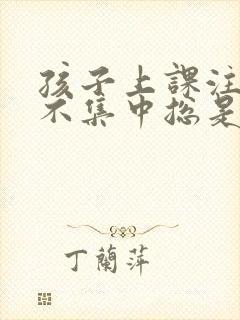 孩子上課注
不集中総是
丁蘭萍